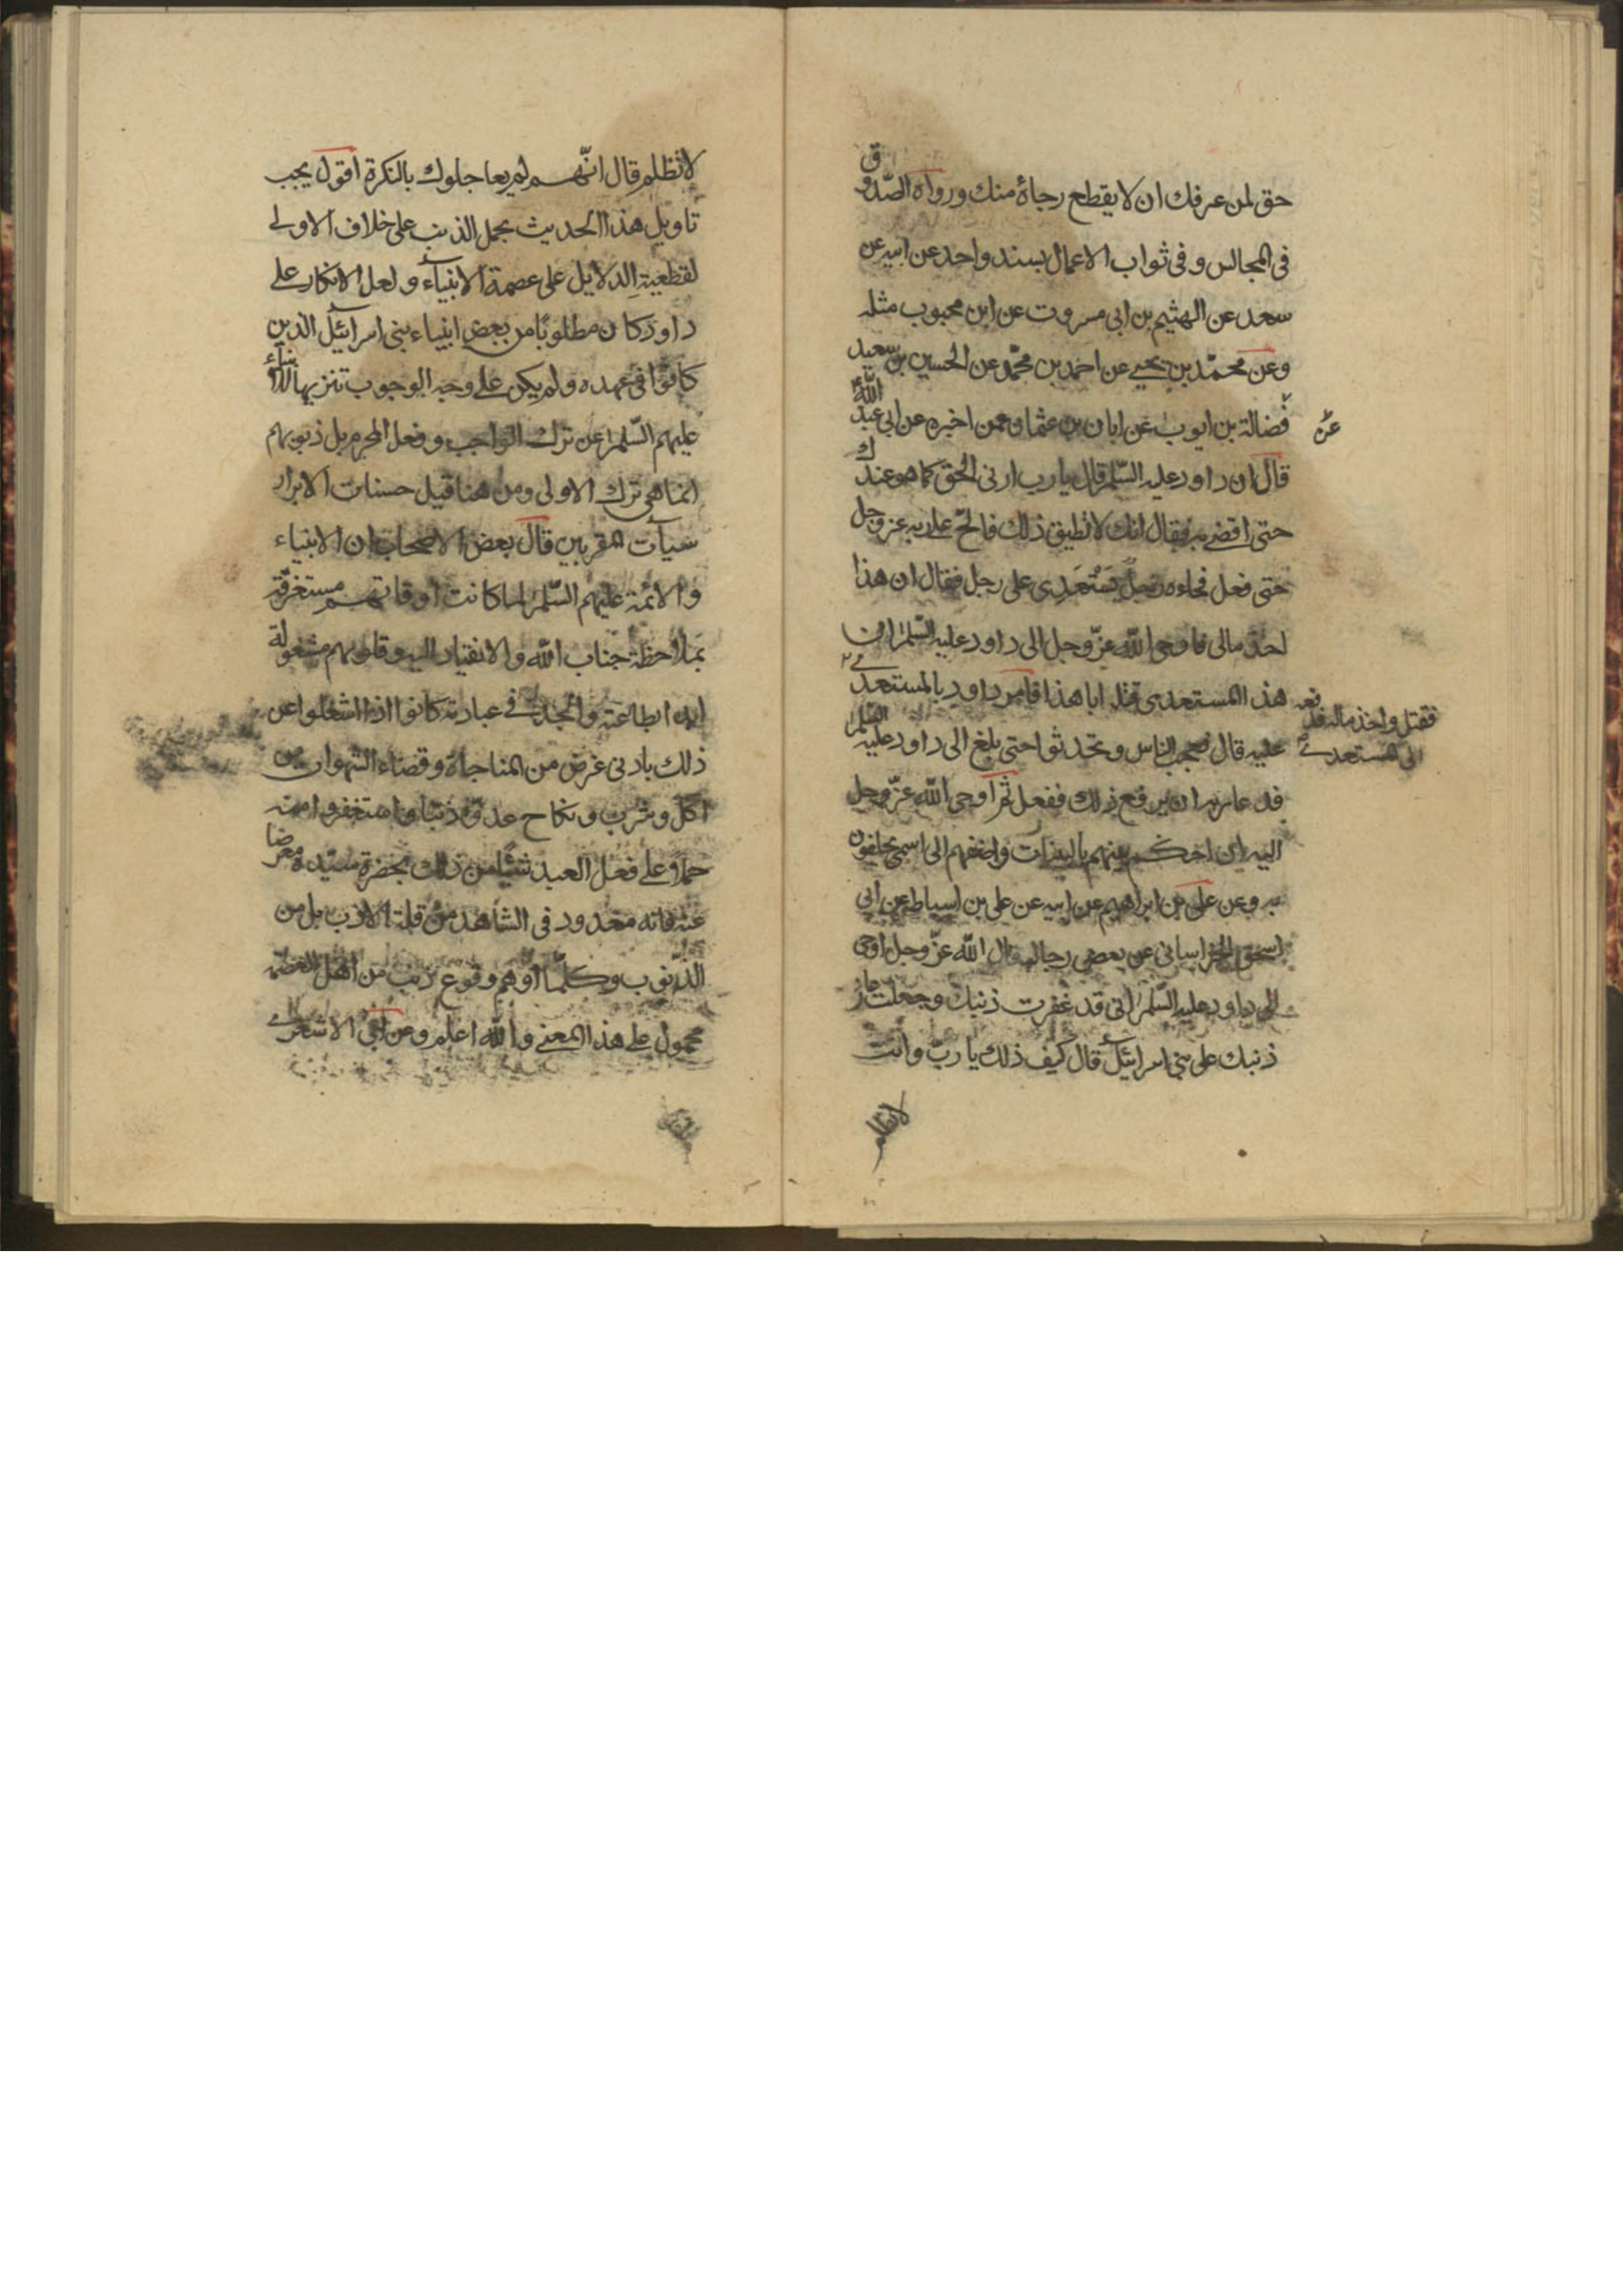 حق لمن عرفك ان لا يقطع رجاؤه منك ورواه الصدوق
فى المجالس وفى ثواب الاعمال بسند واحد عن ابيه عن
سعد عن الهثيم بن ابى مسروق عن ابن محبوب مثله
وعن محمّد بن يحيى عن احمد بن محمّد عن الحسين بن سعيد
عن فضالة بن ايوب عن ابان بن عثمان عمن اخبره عن ابى عبد الله
قال ان داود عليه السّلم قال يا رب ارنى الحق كما هو عندك
حتى اقضى به فقال انك لا تطيق ذلك فالحّ على ربه عز وجل
حتى فعل فجاءه رجل يَسْتَعدِى على رجل فقال ان هذا
اخذ مالى فاوحى الله عزّ وجل الى داود عليه السّلم ان
هذا المستعدى قتل ابا هذا فامر داود بالمستعدى
فقتل واخذ ماله فدفعه
الى المستعدى
عليه قال فعجب الناس وتحدثوا حتى بلغ الى داود عليه السّلم
فدعا ربه ان يرفع ذلك ففعل ثم اوحى الله عزّ وجل
اليه ان احكم بينهم بالبينات واضفهم الى اسمى يحلفون
به وعن على بن ابراهيم عن ابيه عن على بن اسباط عن ابى
اسحق الخراسانى عن بعض رجاله قال الله عزّ وجل اوحى
الى داود عليه السّلم انى قد غفرت ذنبك وجعلت عار
ذنبك على بنى اسرائيل قال كيف ذلك يا ربّ وانت
لا تظلم
لا تظلم قال انّهم لم يعاجلوك بالنكرة اقول يجب
تاويل هذا الحديث بحمل الذنب على خلاف الاولى
لقطعية الدلايل على عصمة الانبياء ولعل الانكار على
داود كان مطلوبًا من بعض انبياء بنى اسرائيل الذين
كانوا فى عهده ولم يكن على وجه الوجوب تنزيها للانبياء
عليهم السّلم عن ترك الواجب وفعل المحرم بل ذنوبهم
انما هى ترك الاولى ومن هنا قيل حسنات الابرار
سيآت المقربين قال بعض الاصحاب ان الانبياء
والائمة عليهم السّلم لما كانت اوقاتهم مستغرقة
بملاحظة جناب الله والانقياد اليه وقلوبهم مشغولة
ابدا بطاعته والجد فى عبادته كانوا اذا اشتغلوا عن
ذلك بادنى غرض من المناجاة وقضاء الشهوات من
اكل وشرب ونكاح عدّوه ذنبا واستغفروا منه
حملا على فعل العبد شيئا من ذلك بحضرة سيّده معرضا
عنه فانه معدود فى الشاهد من قلة الادب بل من
الذنوب وكلّما اوهم وقوع ذنب من اهل العصمة
محمول على هذا المعنى والله اعلم وعن ابى الاشعرى